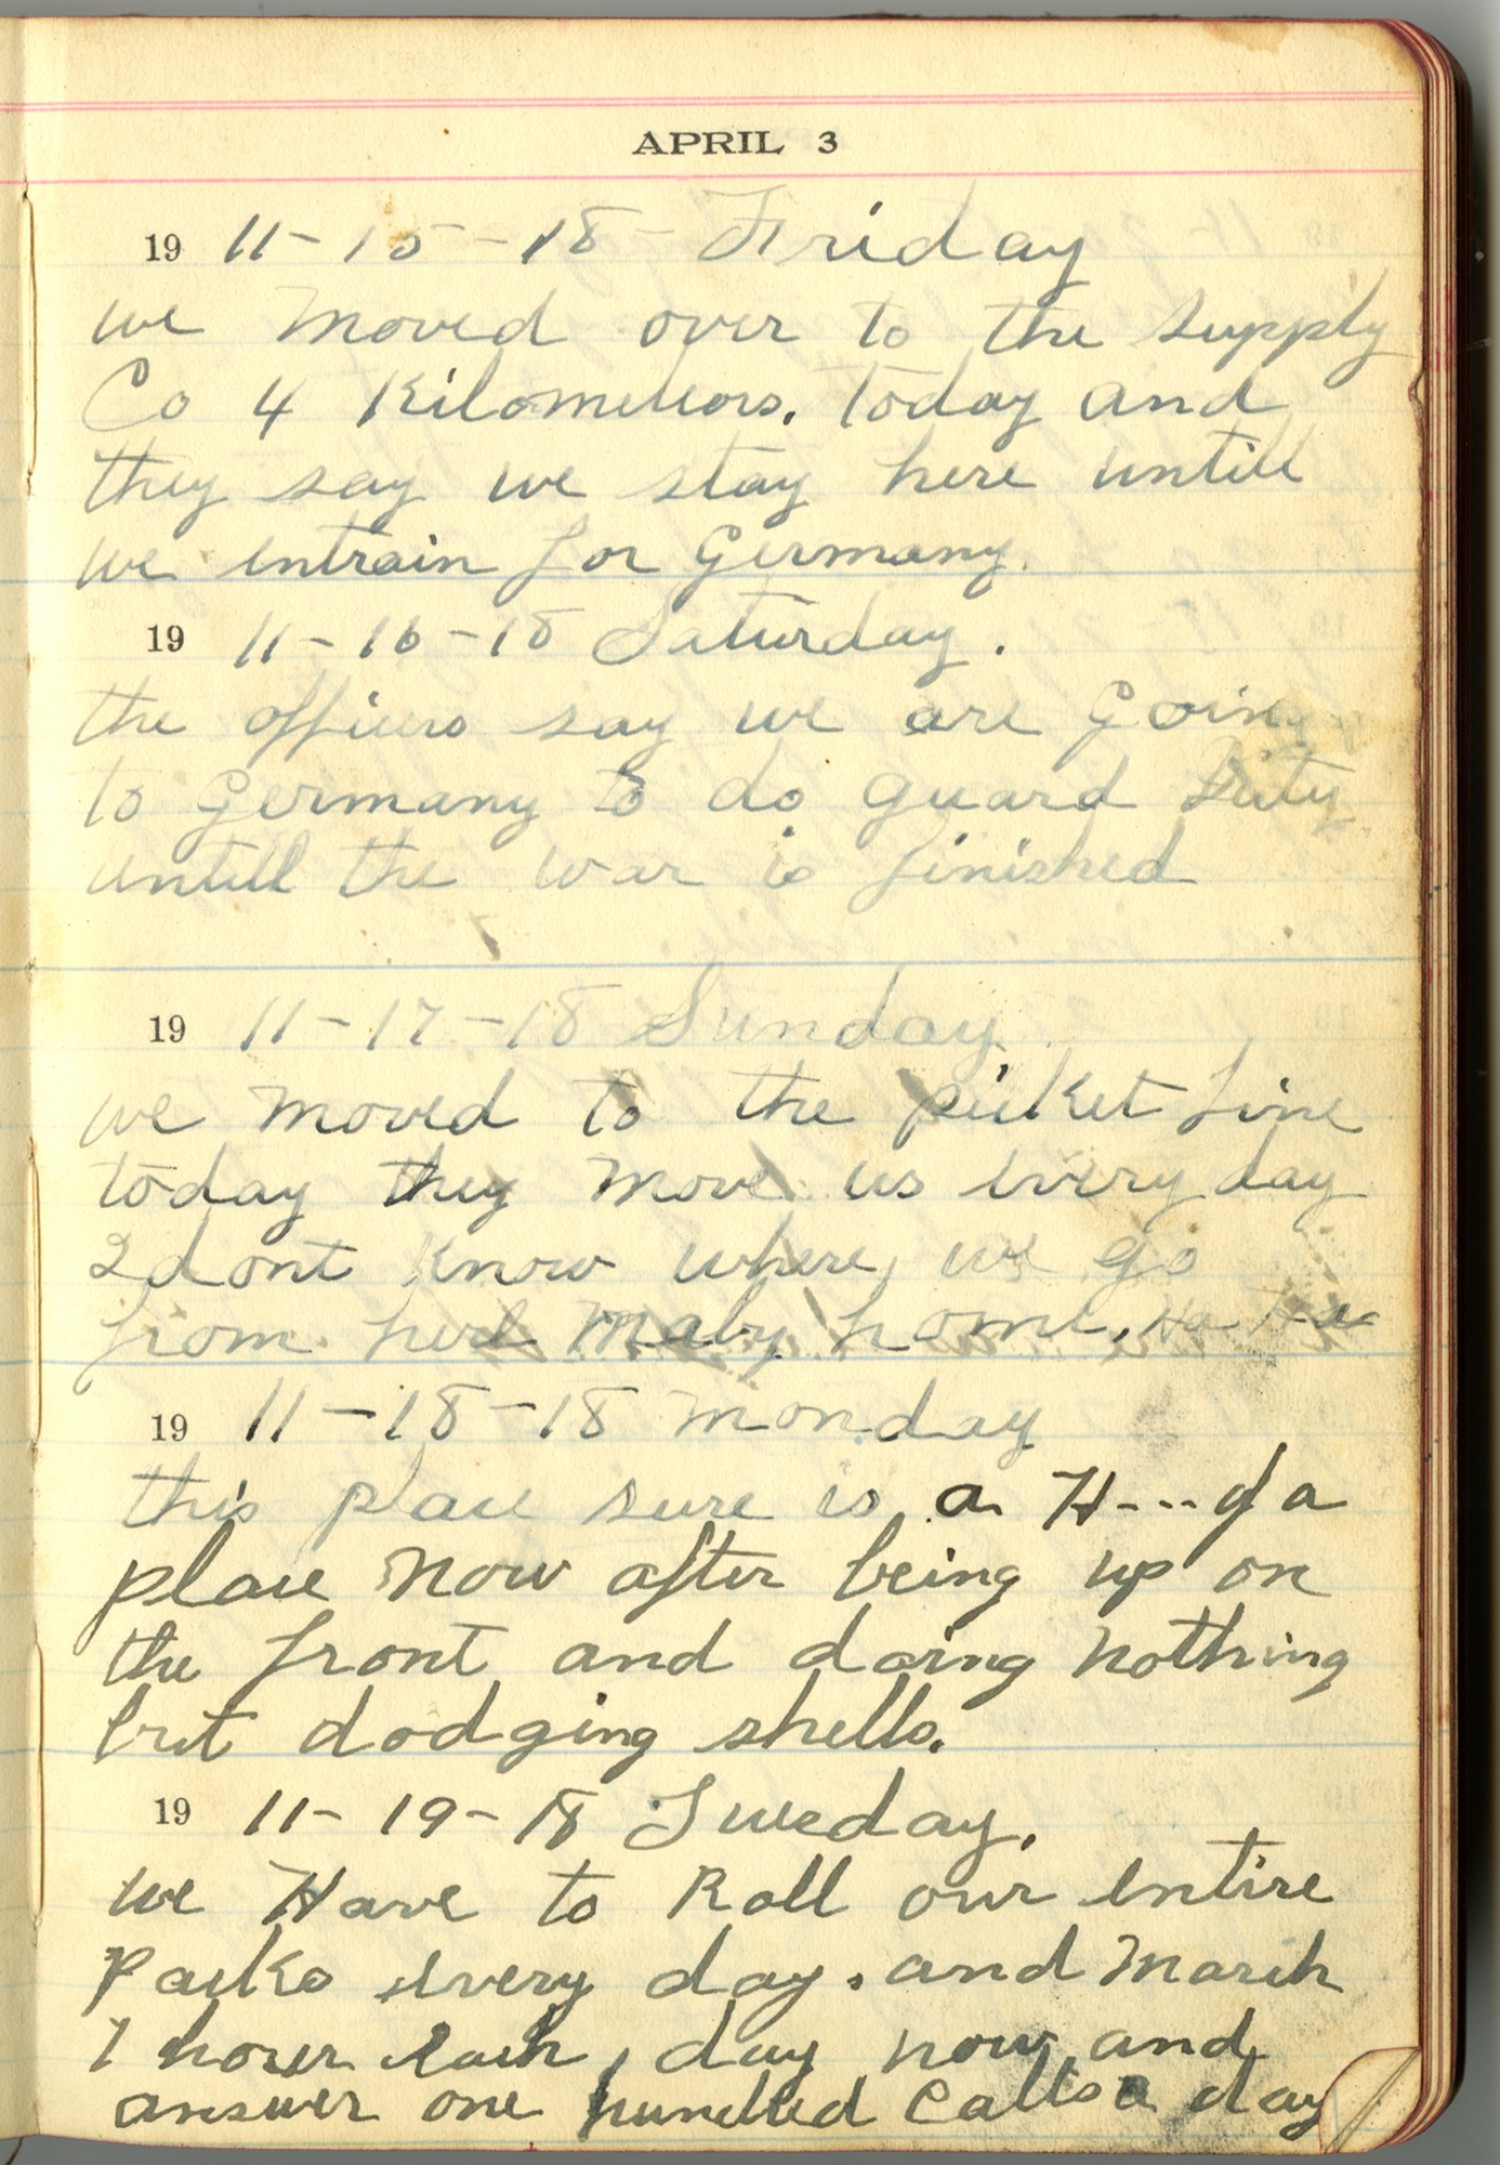 APRIL 3
19 11-15-18- Friday
we moved over to the supply
Co 4 Kilometeors. today and
they say we stay here untill
we entrain for Germany.
19 11-16-18 Saturday.
the officers say we are Going
to Germany to do guard Duty
untill the war is finished
19 11-17-18 Sunday
we moved to the picket line
today they move us every day
I dont know where we go
from here Maby home, Ha Ha
19 11-18-18 monday
this place sure is a H---of a
place now after being up on
the front and doing nothing
but dodging shells.
19 11-19-18 Tuesday.
we Have to Roll our entire
packs every day. and March
1 hour each day now and
answer one hundred calls a day